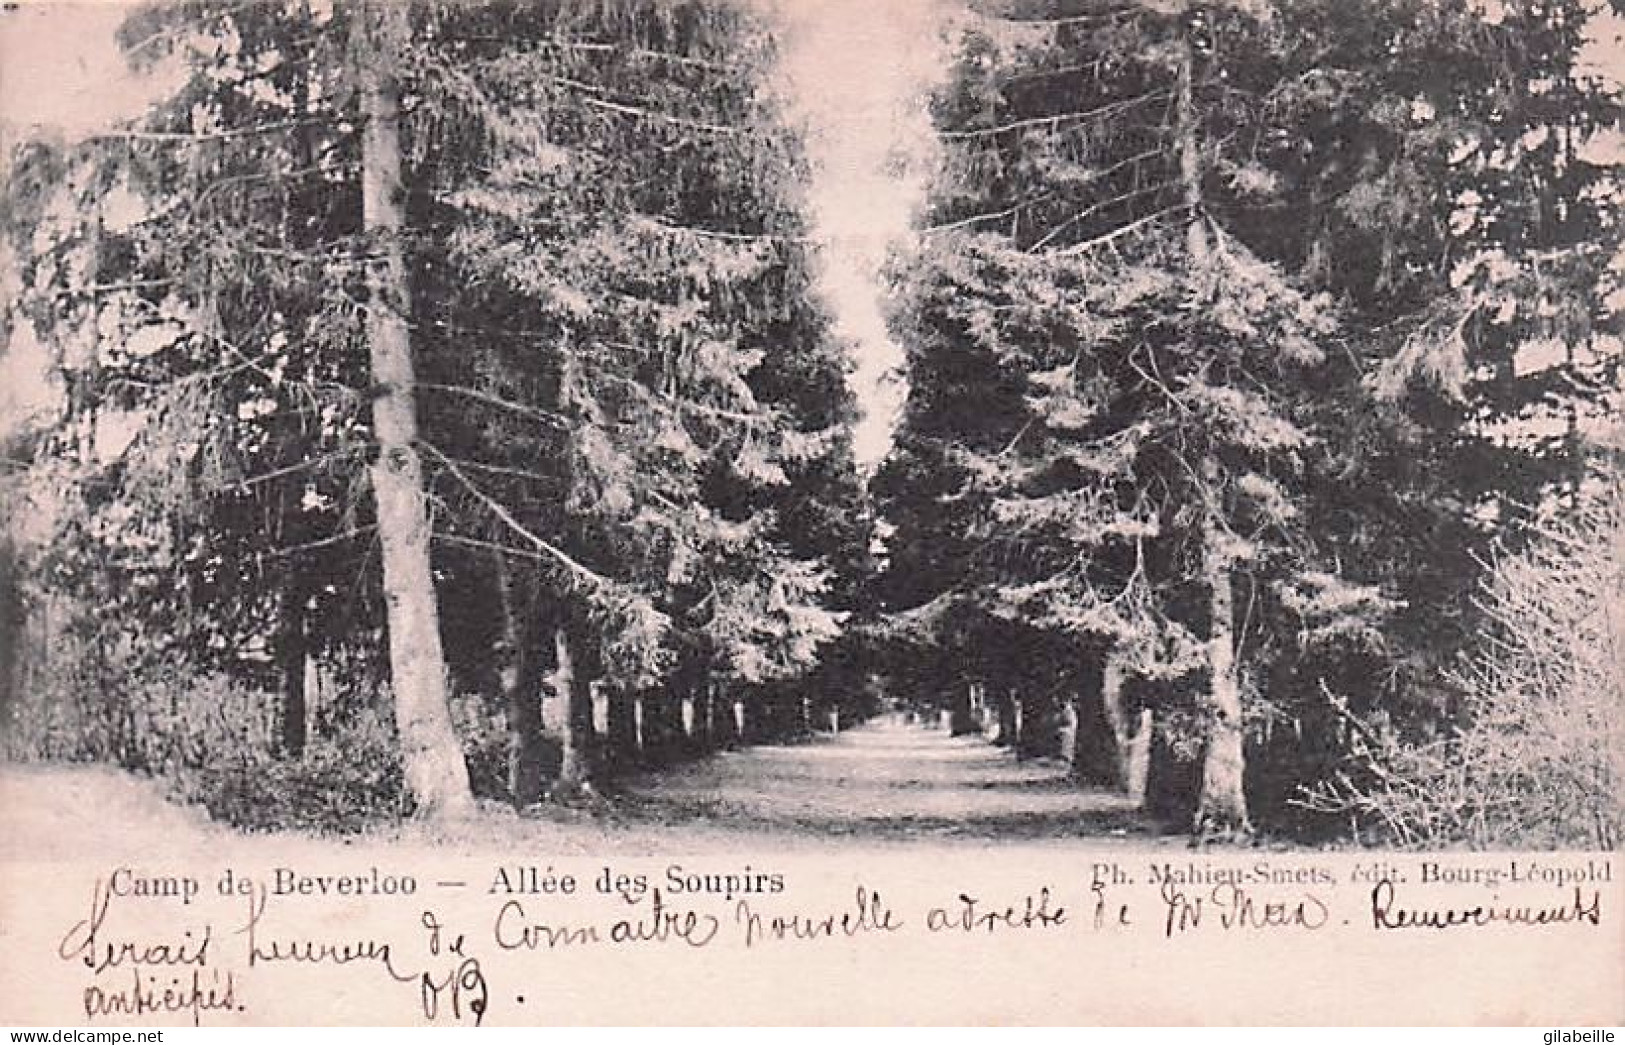 Camp de Beverloo — Allée des Soupirs
Ph. Mahieu-Smets, édit. Bourg-Léopold
Serais heureux de Connaitre nouvelle adresse de Mr Man. Remerciments
anticipés. OB.
delcampe.net
gilabeille